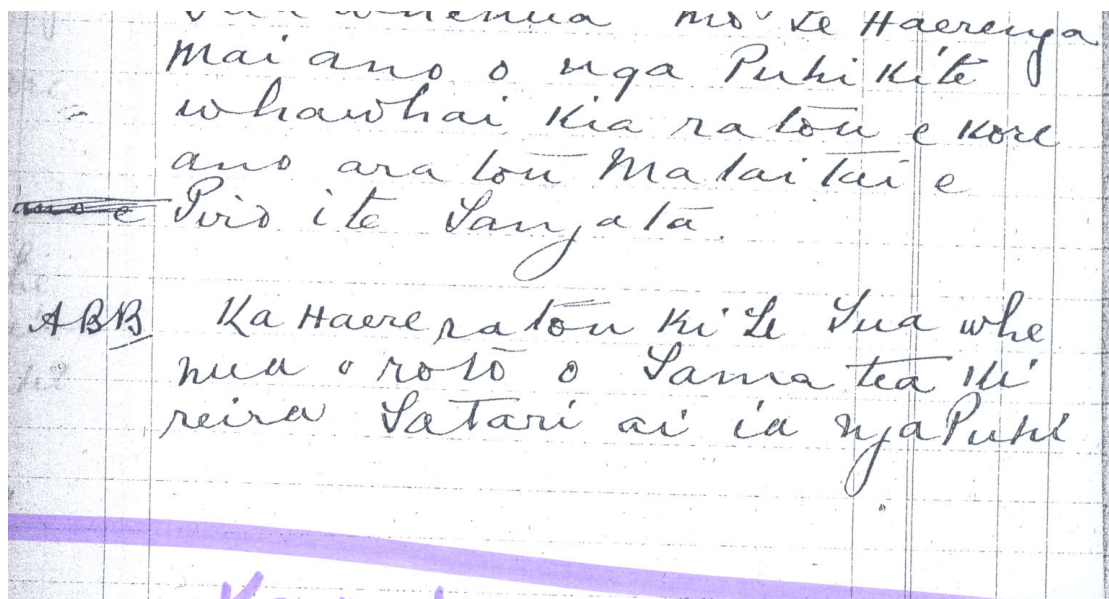 whenua mo te Haerenga
mai ano o nga Puhi kite
whawhai kia ratou e kore
ano aratou Mataitai e
Piro ite Tangata.
ABB Ka Haere ratou ki te Tua whe
nua o roto o Tamatea ki
reira Tatari ai ia ngaPuhi